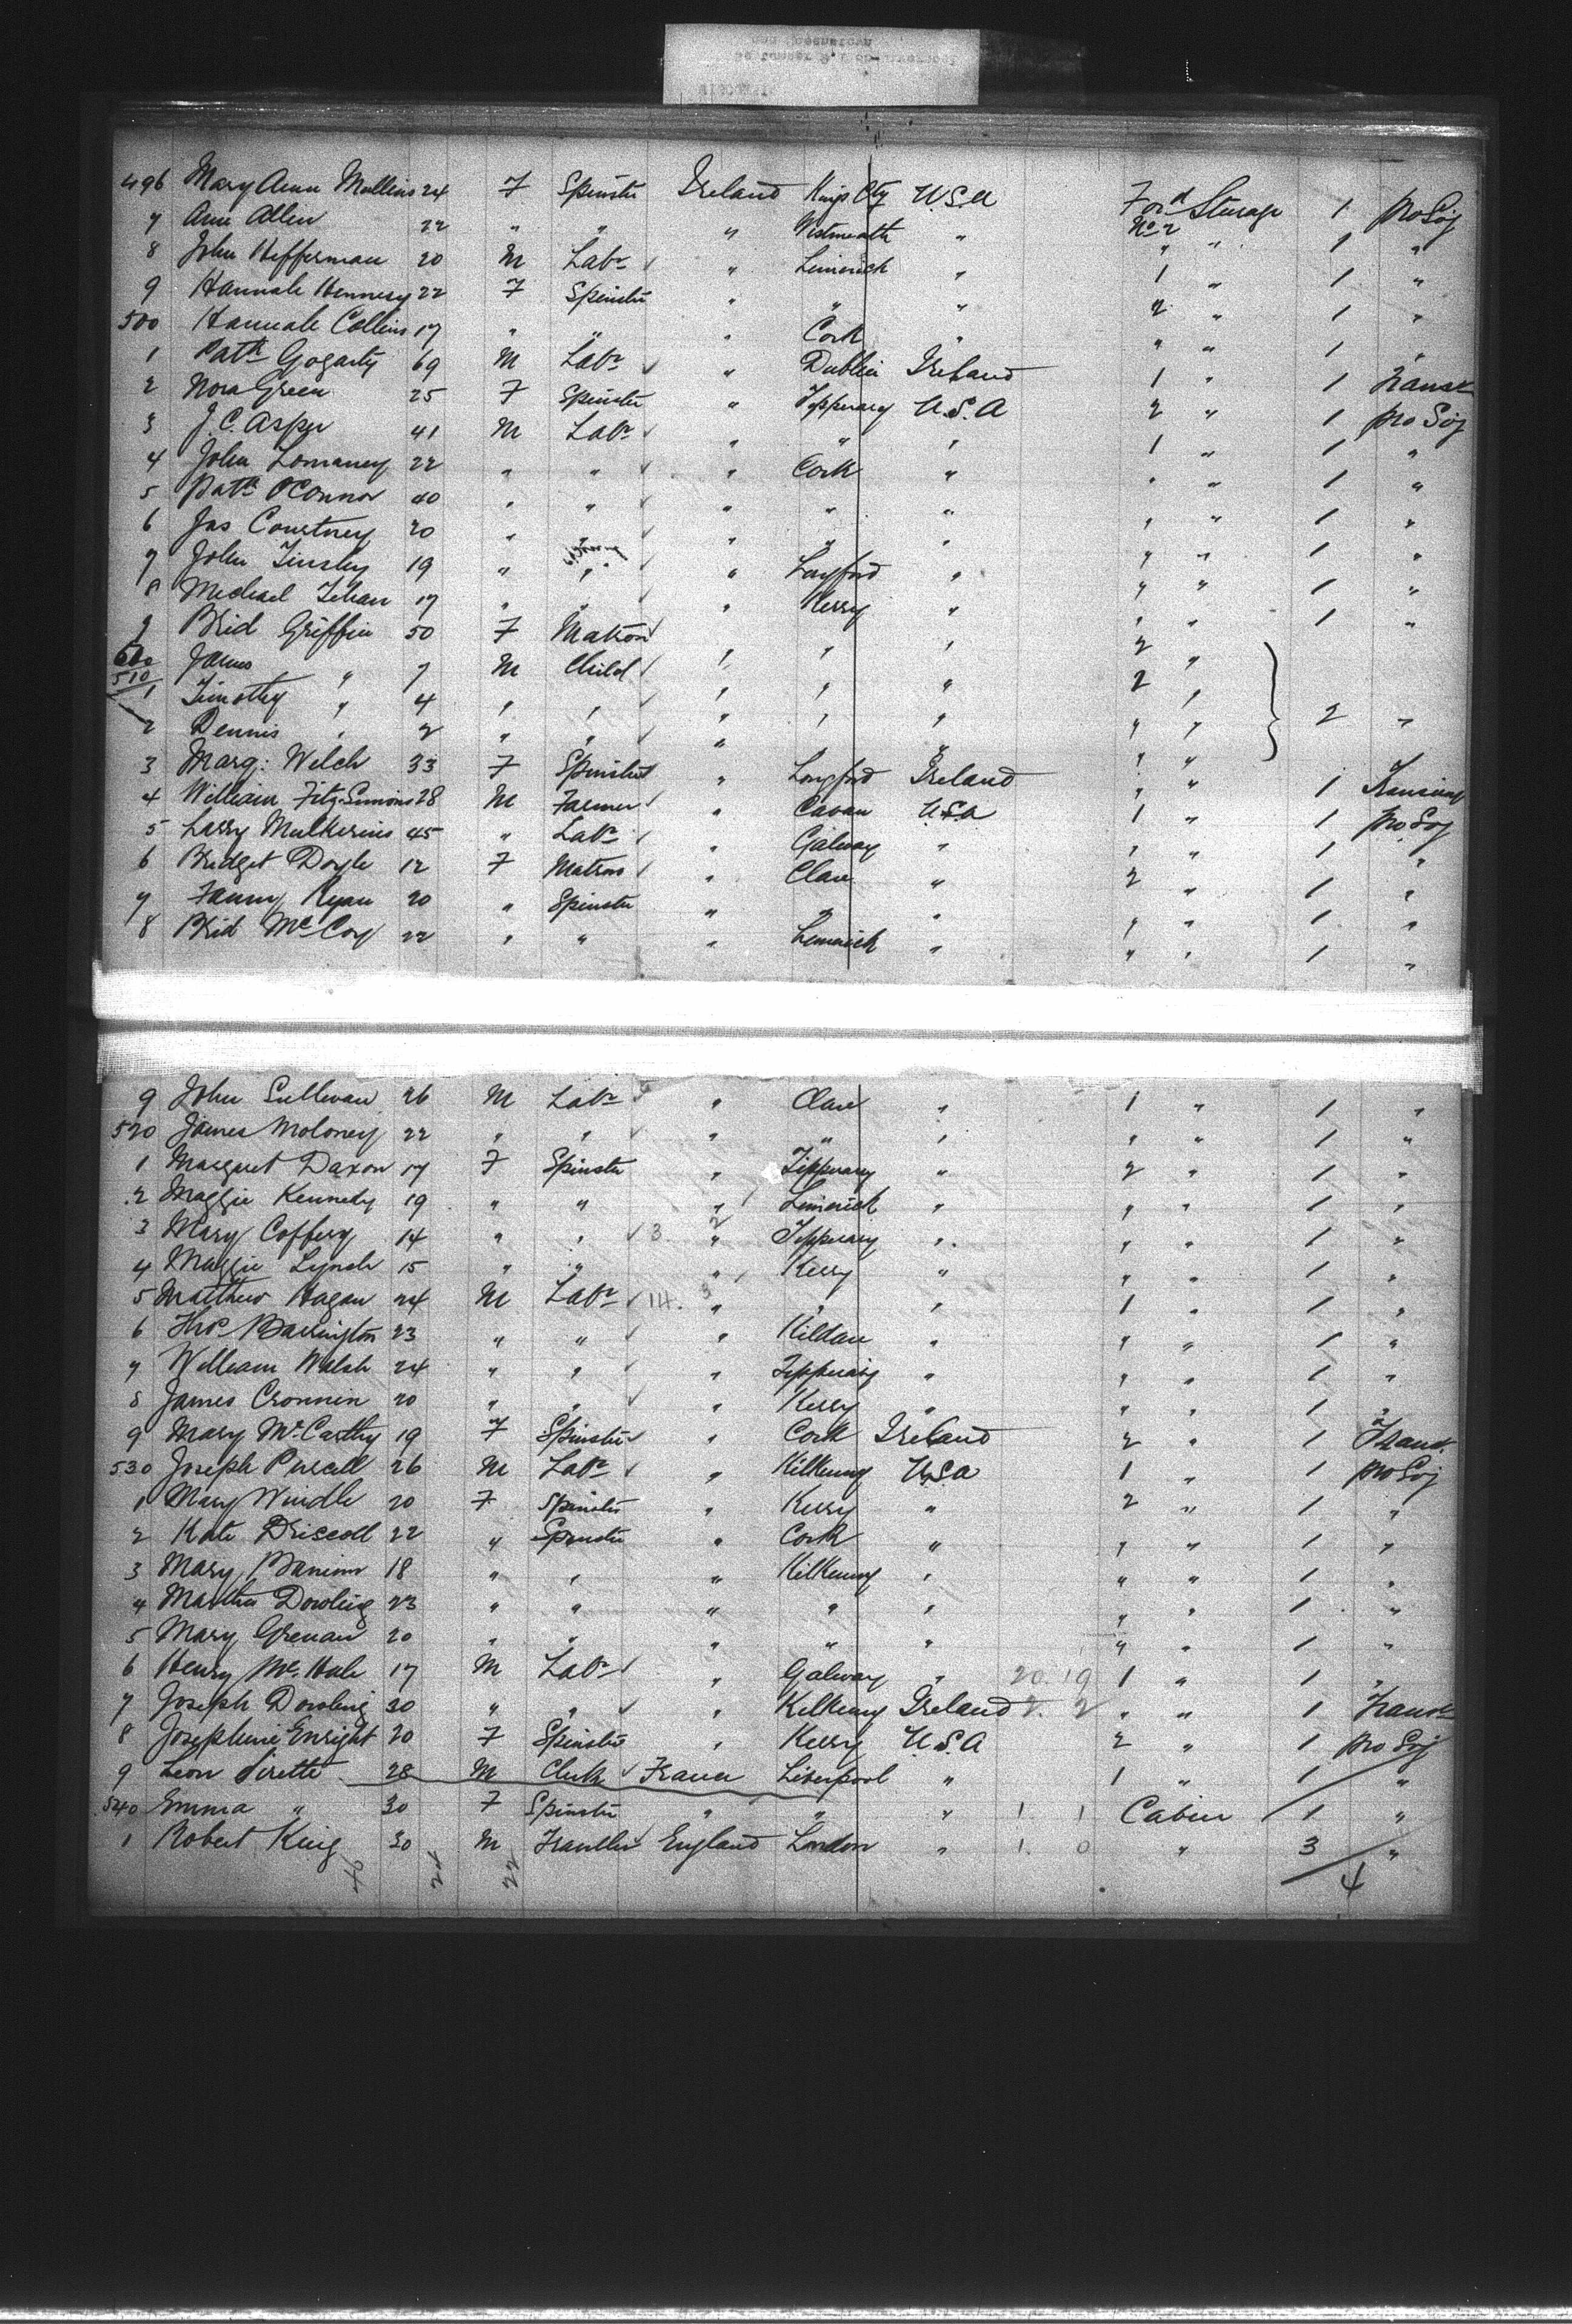 496 Mary Ann Mullins 24 F Spinster Ireland Kings Cty U.S.A For'd Steerage 1 Pro Soj
7 Ann Allen 22 " " " Westmeath " No 2 " 1 "
8 John Hefferman 20 M Labr " Limerick " 1 " 1 "
9 Hannah Hennesy 22 F Spinster " " " 2 " 1 "
500 Hannah Collins 17 " " " Cork " " " 1 "
1 Patk Gogarty 69 M Labr " Dublin Ireland 1 " 1 Transt
2 Nora Green 25 F Spinster " Tipperary U.S.A 2 " 1 Pro Soj
3 J.C. Asper 41 M Labr " " " 1 " 1 "
4 John Lomaney 22 " " " Cork " " " 1 "
5 Patk O'Connor 40 " " " " " " " 1 "
6 Jas Courtney 20 " " " " " " " 1 "
7 John Tinsley 19 " " " Longford " " " 1 "
8 Michael 17 " " " Kerry " " " 1 "
9 Brid Griffin 50 F Matron " " " 2 "
510 James " 7 M Child " " " 2 "
1 Timothy " 4 " " " " " " " 2 "
2 Dennis " 2 " " " " " " "
3 Marg: Welch 33 F Spinster " Longford Ireland " " 1 Transient
4 William Fitz-Simons 28 M Farmer " Cavan U.S.A 1 " 1 Pro Soj
5 Larry Mulkerins 45 " Labr " Galway " " " 1 "
6 Bridget Doyle 12 F Matron " Clare " 2 " 1 "
7 Fanny Ryan 20 " Spinster " " " " " 1 "
8 Brid McCoy 22 " " " Limerick " " " 1 "
9 John Sullivan 26 M Labr " Clare " 1 " 1 "
520 James Moloney 22 " " " " " " " 1 "
1 Margaret Daxon 17 F Spinster " Tipperary " 2 " 1 "
2 Maggie Kennedy 19 " " " Limerick " " " 1 "
3 Mary Coffery 14 " " 3 2 " Tipperary " " " 1 "
4 Maggie Lynch 15 " " " Kerry " " " 1 "
5 Matthew Hagan 24 M Labr 14 3 " " " 1 " 1 "
6 Thos Barrington 23 " " " Kildare " " " 1 "
7 William Walsh 24 " " " Tipperary " " " 1 "
8 James Cronnin 20 " " " Kerry " " " 1 "
9 Mary McCarthy 19 F Spinster " Cork Ireland 2 " 1 Trans.
530 Joseph Purcell 26 M Labr " Kilkenny U.S.A 1 " 1 Pro Soj
1 Mary Windle 20 F Spinster " Kerry " 2 " 1 "
2 Kate Driscoll 22 " Spinster " Cork " " " 1 "
3 Mary 18 " " " Kilkenny " " " 1 "
4 Martha Dowling 23 " " " " " " " 1 "
5 Mary Grenan 20 " " " " " " " 1 "
6 Henry McHale 17 M Labr " Galway " 20 19 1 " 1 "
7 Joseph Dowling 30 " " " Kilkenny Ireland 2. 2 " " 1 Transt
8 Josephine Enright 20 F Spinster " Kerry U.S.A 2 " 1 Pro Soj
9 Leon Pirette 28 M Clerk France Liverpool " 1 " 1 "
540 Emma " 30 F Spinster " " " 1. 1 Cabin 1 "
1 Robert King 30 M Traveller England London " 1. 0 " 3 "
24 22 4